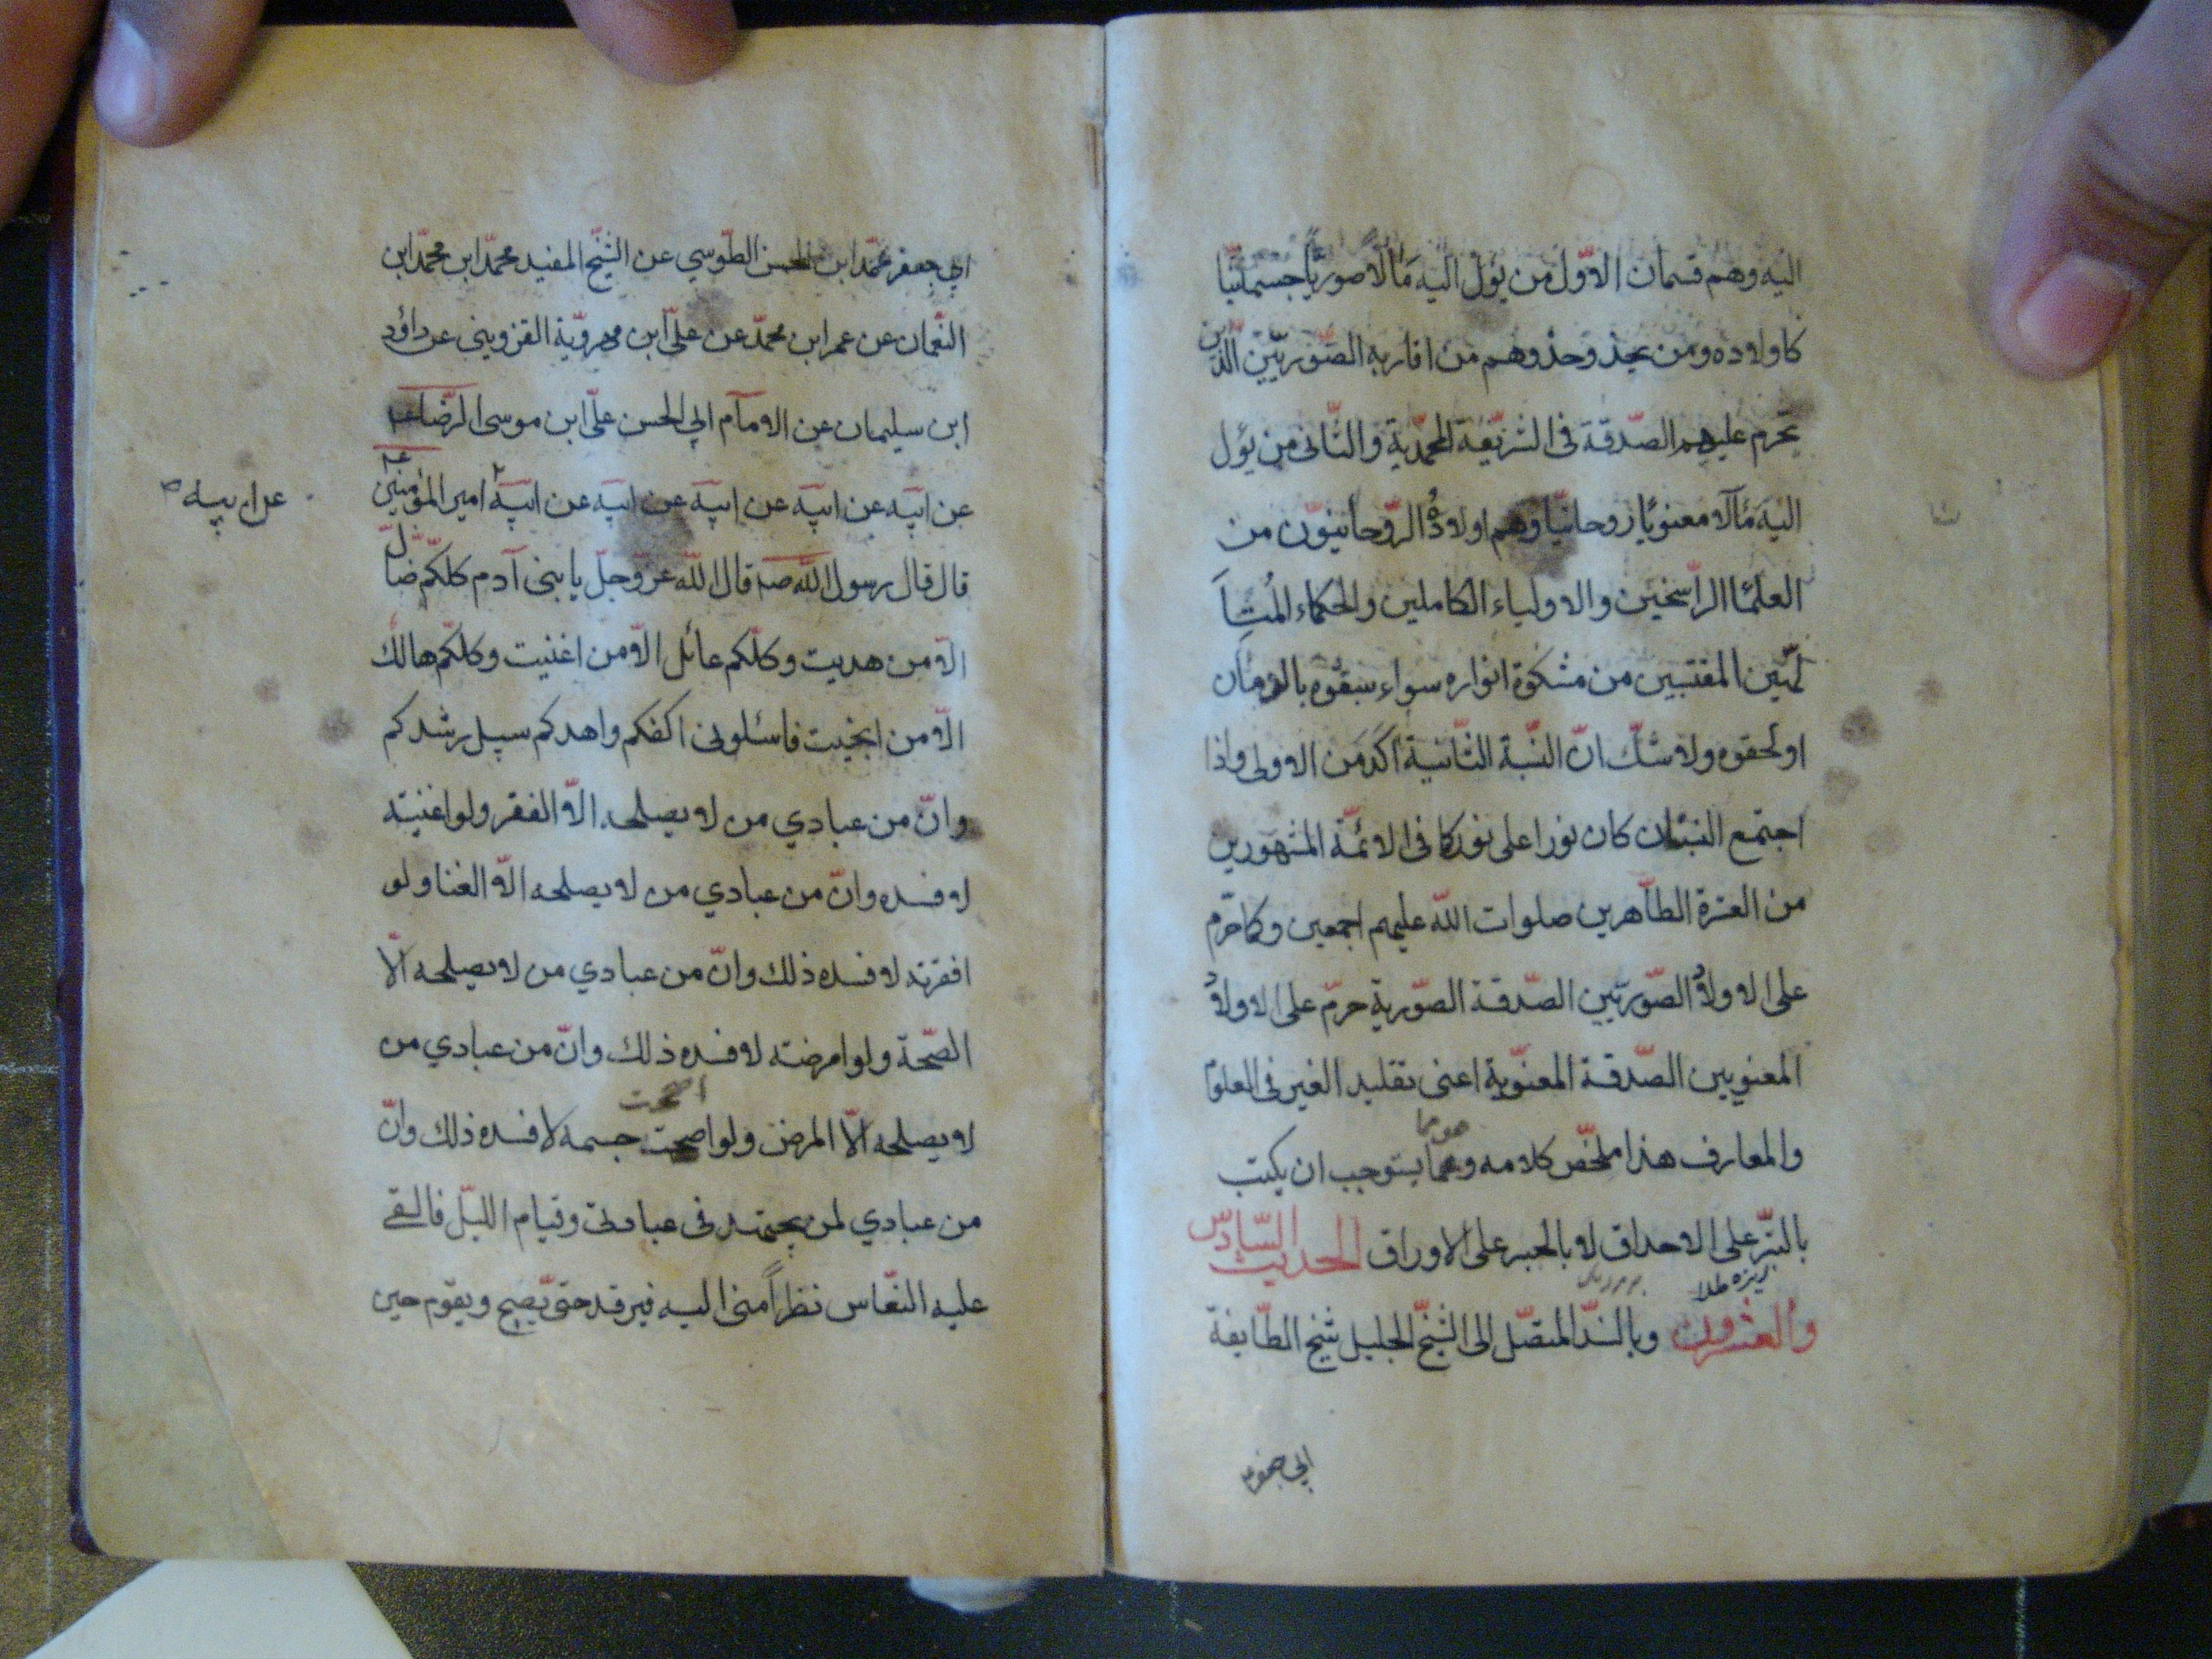 اليه وهم قسمان الاوّل من يؤل اليه مآلا صوريّا جسمانيّا
كاولاده ومن يحذو حذوهم من اقاربه الصّوريّين الّذين
تحرم عليهم الصّدقة فى الشّريعة المحمّدية والثّانى من يؤل
اليه مآلا معنويّا روحانيّا وهم اولاده الرّوحانيّون من
العلمآ الرّاسخين والاولياء الكاملين والحكماء المُتِأَ
لهّين المقتبسين من مشكوة انواره سواء سبقوه بالزمان
او لحقوه ولا شكّ انّ النّسبة الثّانية آكد من الاولى واذا
اجتمع النسبتان كان نورا على نور كما فى الائمّة المشهورين
من العترة الطّاهرين صلوات اللّه عليهم اجمعين وكما حرّم
على الاولادُ الصّوريّين الصّدقة الصّورية حرّم على الاولادُ
المعنويين الصّدقة المعنّوية اعنى تقليد الغير فى العلوم
والمعارف هذا ملخّص كلامه وهو مما يستوجب ان يكتب
هو مما
بالتبّر على الاحداق لا بالحبر على الاوراق الحديث السّادس
ريزه طلا
والعشرون وبالسّند المتصّل الى الشّيخ الجليل شيخ الطّايفة
ابي جعفر
ابي جعفر محمّد ابن الحسن الطّوسي عن الشّيخ المفيد محمّد ابن محمّد ابن
النّعمان عن عمر ابن محمّد عن علىّ ابن مهرويّة القزوينى عن داؤد
ابن سليمان عن الامآم ابي الحسن علىّ ابن موسى الرّضا عم
عن ابيه عن ابيه عن ابيه عن ابيه عن ابيه امير المؤمنين عم
عن ابيه ص
قال قال رسول اللّه صم قال اللّه عزّ وجلّ يا بنى آدم كلّكم ضآلّ
الّا من هديت وكلّكم عائل الّا من اغنيت وكلّكم هالك
الّا من انجيت فاسئلونى اكفكم واهدكم سبيل رشدكم
وانّ من عبادي من لا يصلحه الّا الفقر ولو اغنيته
لافسده وانّ من عبادي من لا يصلحه الّا الغنا ولو
افقرته لافسده ذلك وانّ من عبادي من لا يصلحه الّا
الصّحة ولو امرضته لافسده ذلك وانّ من عبادي من
اصححت
لا يصلحه الّا المرض ولو اصححت جسمه لافسده ذلك وانّ
من عبادي لمن يجتهد فى عبادتى وقيام اللّيل فالقى
عليه النّعاس نظراً منى اليه فيرقد حتىّ يصبح ويقوم حين